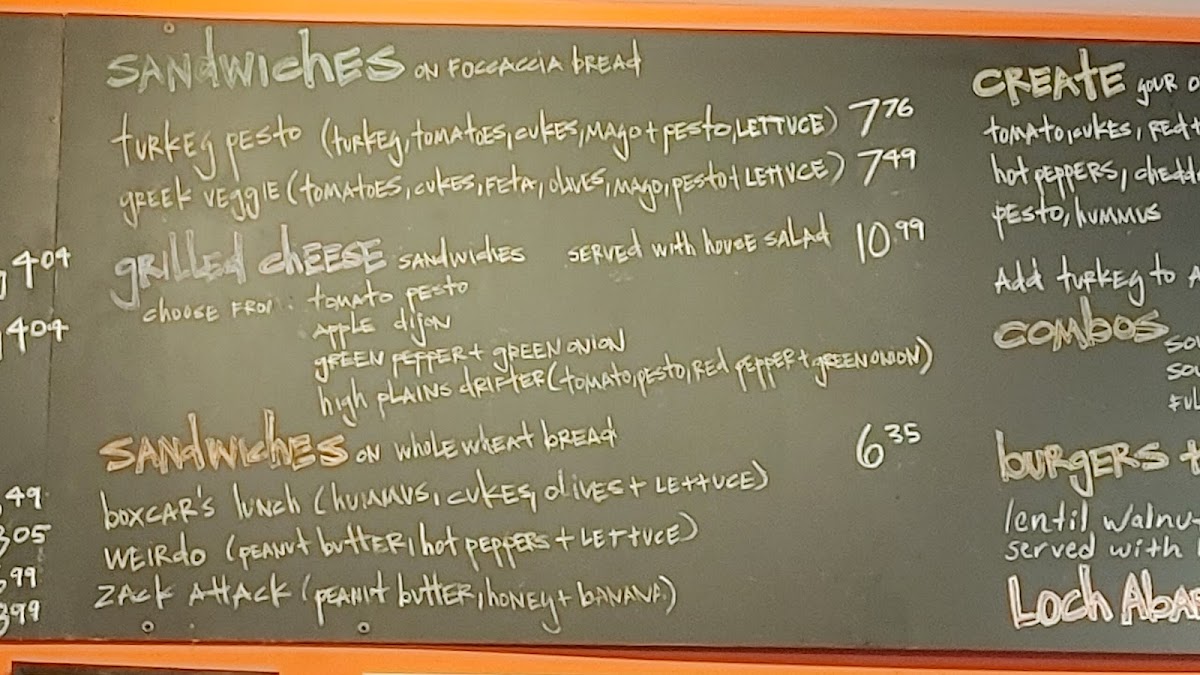 SANDWICHES ON FOCCACCIA BREAD
TURKEY PESTO (TURKEY, TOMATOES, CUKES, MAYO + PESTO, LETTUCE) 7 76
GREEK VEGGIE (TOMATOES, CUKES, FETA, OLIVES, MAYO, PESTO + LETTUCE) 7 49
GRILLED CHEESE SANDWICHES SERVED WITH HOUSE SALAD 10.99
CHOOSE FROM: TOMATO PESTO
APPLE DIJON
GREEN PEPPER + GREEN ONION
HIGH PLAINS DRIFTER (TOMATO, PESTO, RED PEPPER + GREEN ONION)
SANDWICHES ON WHOLE WHEAT BREAD 6 35
BOXCAR'S LUNCH (HUMMUS, CUKES, OLIVES + LETTUCE)
WEIRDO (PEANUT BUTTER, HOT PEPPERS + LETTUCE)
ZACK ATTACK (PEANUT BUTTER, HONEY + BANANA)
4 04
4 04
49
05
99
99
CREATE YOUR
TOMATO, CUKES,
HOT PEPPERS,
PESTO, HUMMUS
ADD TURKEY TO
COMBOS
BURGERS +
LENTIL
SERVED WITH
LOCH